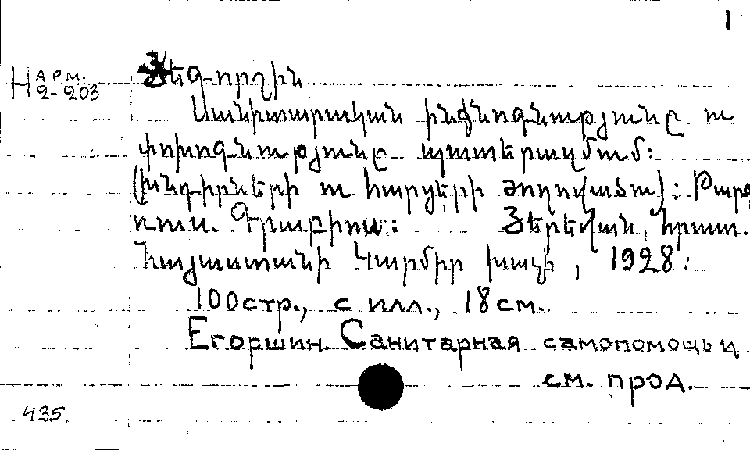 1
Н АРМ.
2-203
Յեգորշին
Սանիտարական ինքնոգնությունը ու
փոխոգնությունը պատերազմում:
(Խնդիրների ու հարցերի ժողովածու): Թարգ
ռուս. Գրաբիոս: Յերեվան, հրատ.
Հայաստանի Կարմիր խաչի, 1928:
100стр., с илл., 18см.
Егоршин Санитарная самопомощь и
см. прод.
435